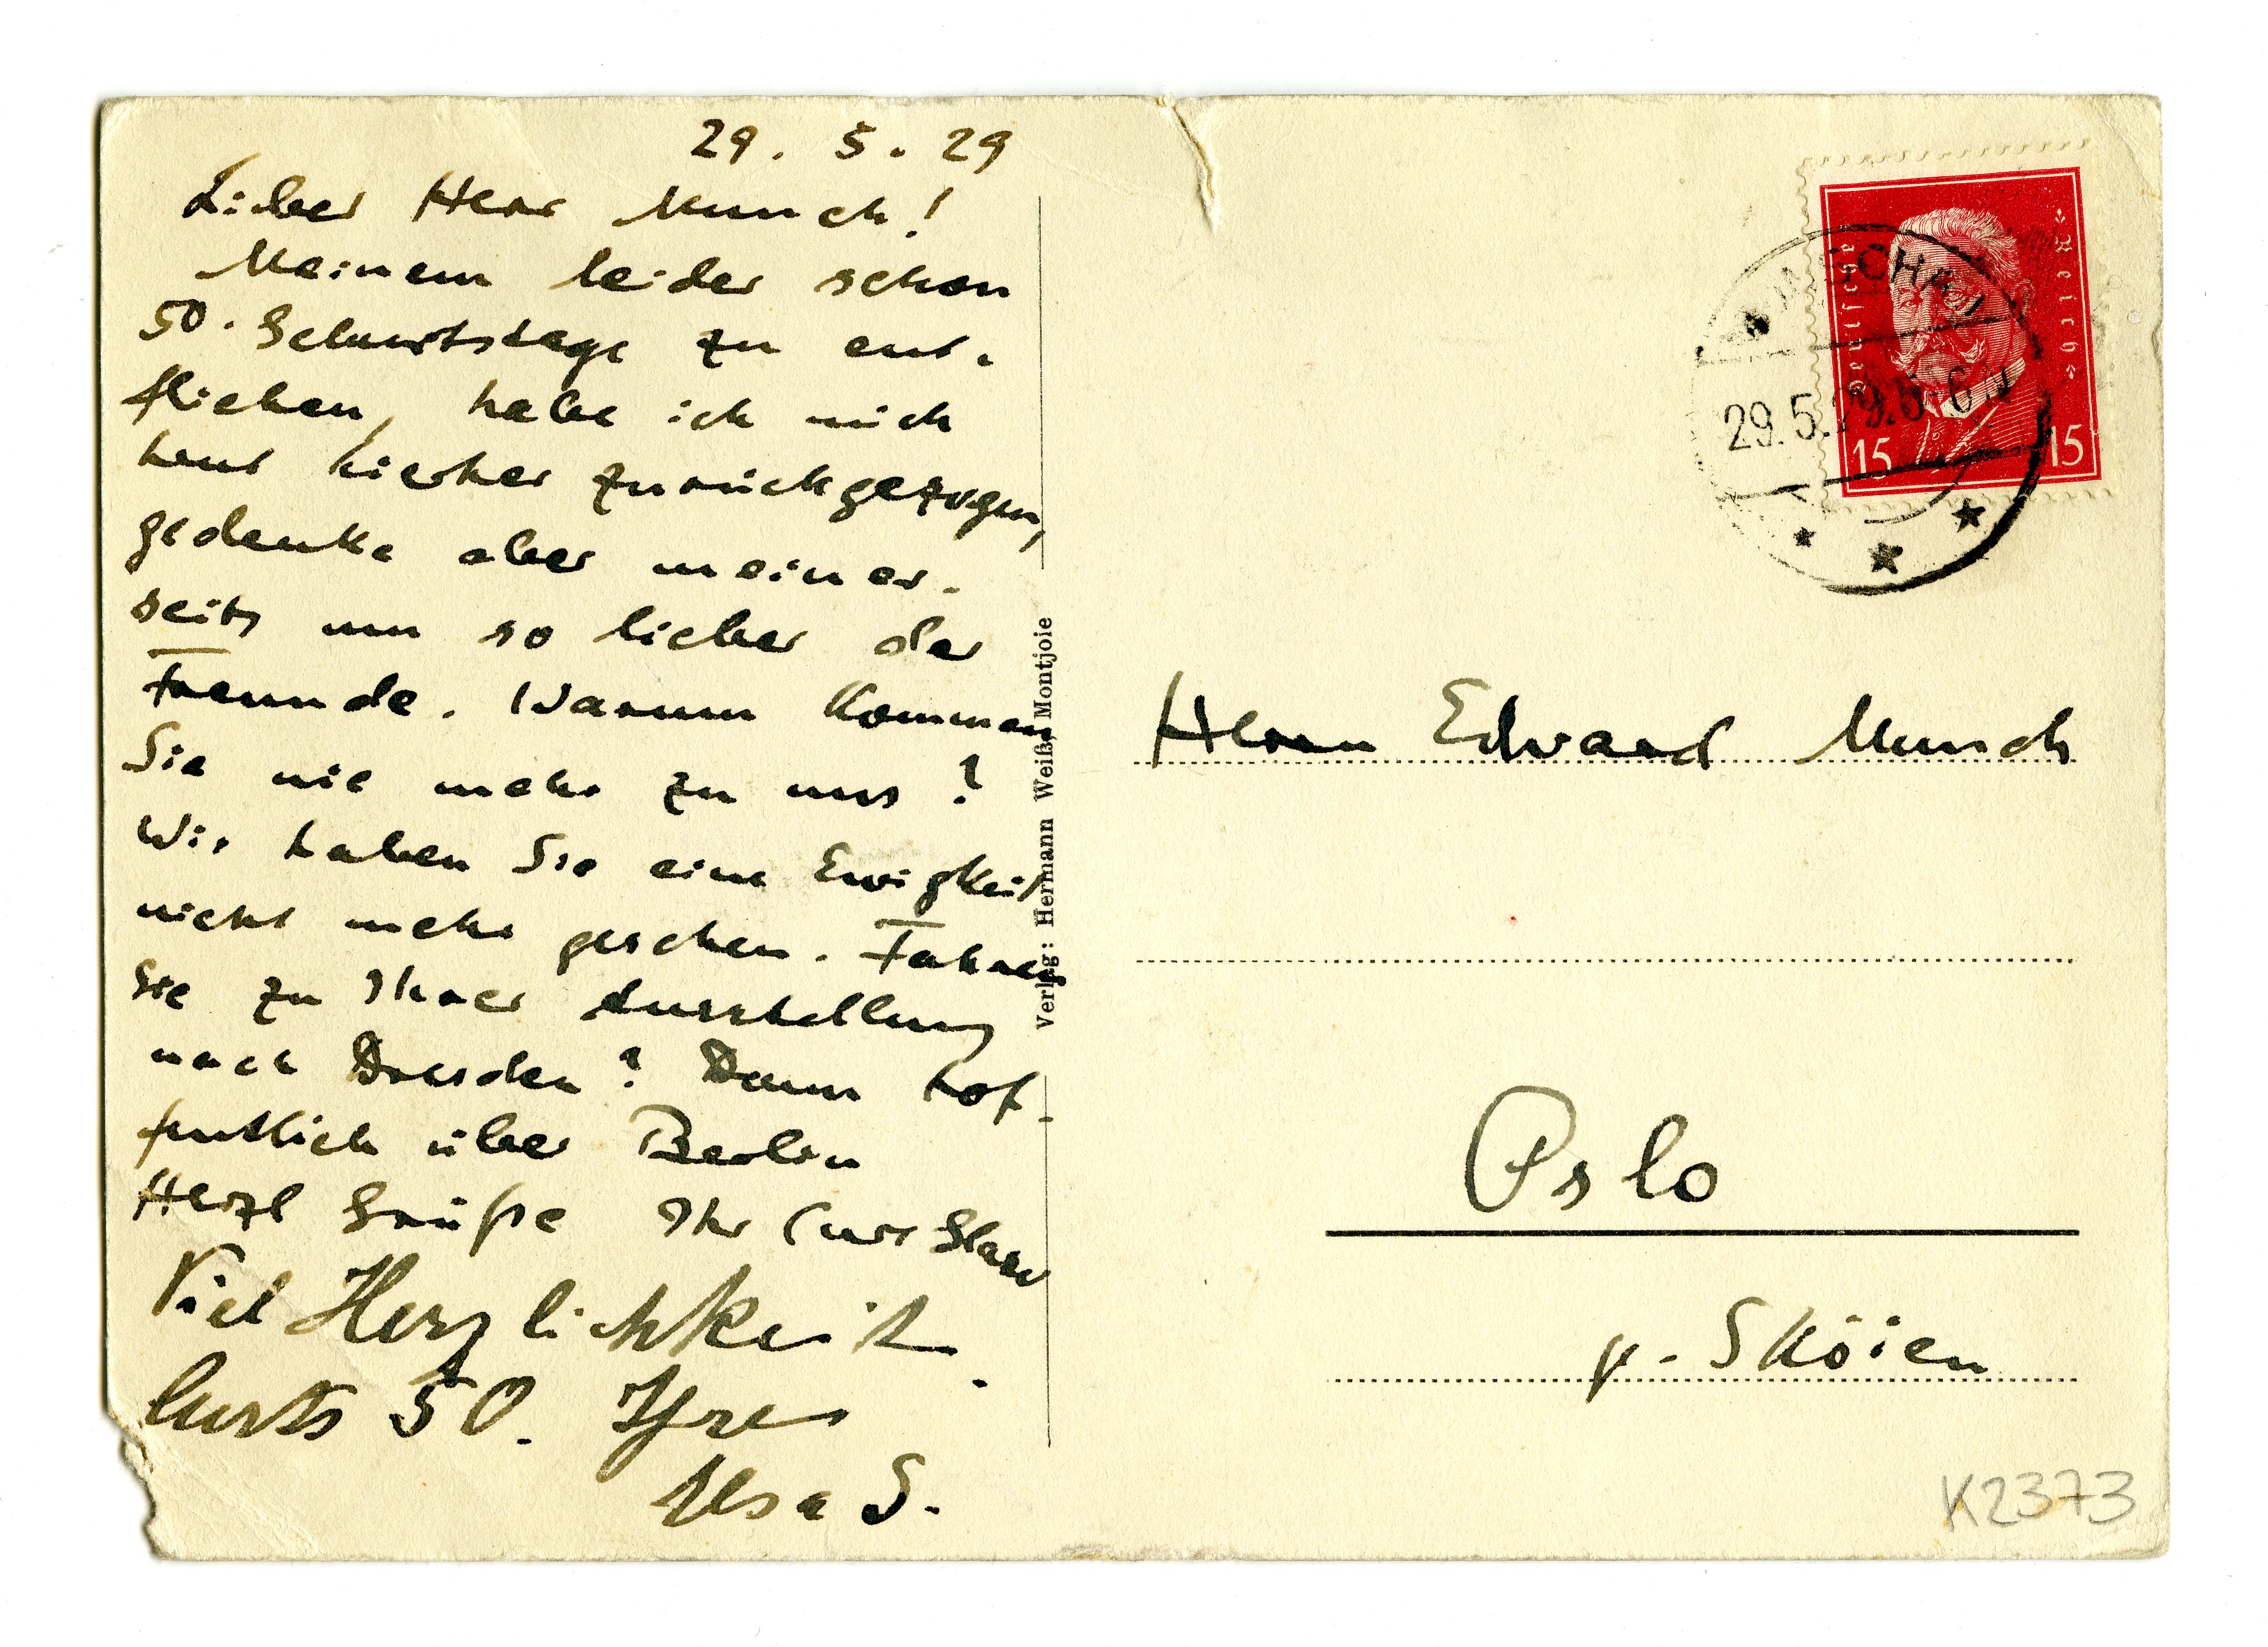 29. 5. 29
Lieber Herr Munch!
Meinem leider schon
50. Geburtstage zu ent-
fliehen, habe ich mich
heut hierher zurückgezogen,
gedenke aber meiner-
seits um so lieber der
Freunde. Warum kommen
Sie nie mehr zu uns?
Wir haben Sie eine Ewigkeit
nicht mehr gesehen. Fahren
Sie zu Ihrer Ausstellung
nach Dresden? Dann hof-
fentlich über Berlin
Herzl Grüße Ihr Curt Glaser
Viel Herzlichkeit.
Curts 50. Ihre
Elsa G.
Verlag: Hermann Weiß, Montjoie
Deutsches Reich
15 15
29.5.29.5-6
Herrn Edvard Munch
Oslo
p. Sköien
K2373